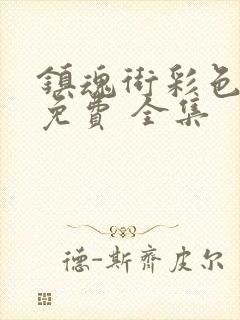 鎮魂街彩色
免費 全集
德-斯齊皮尔